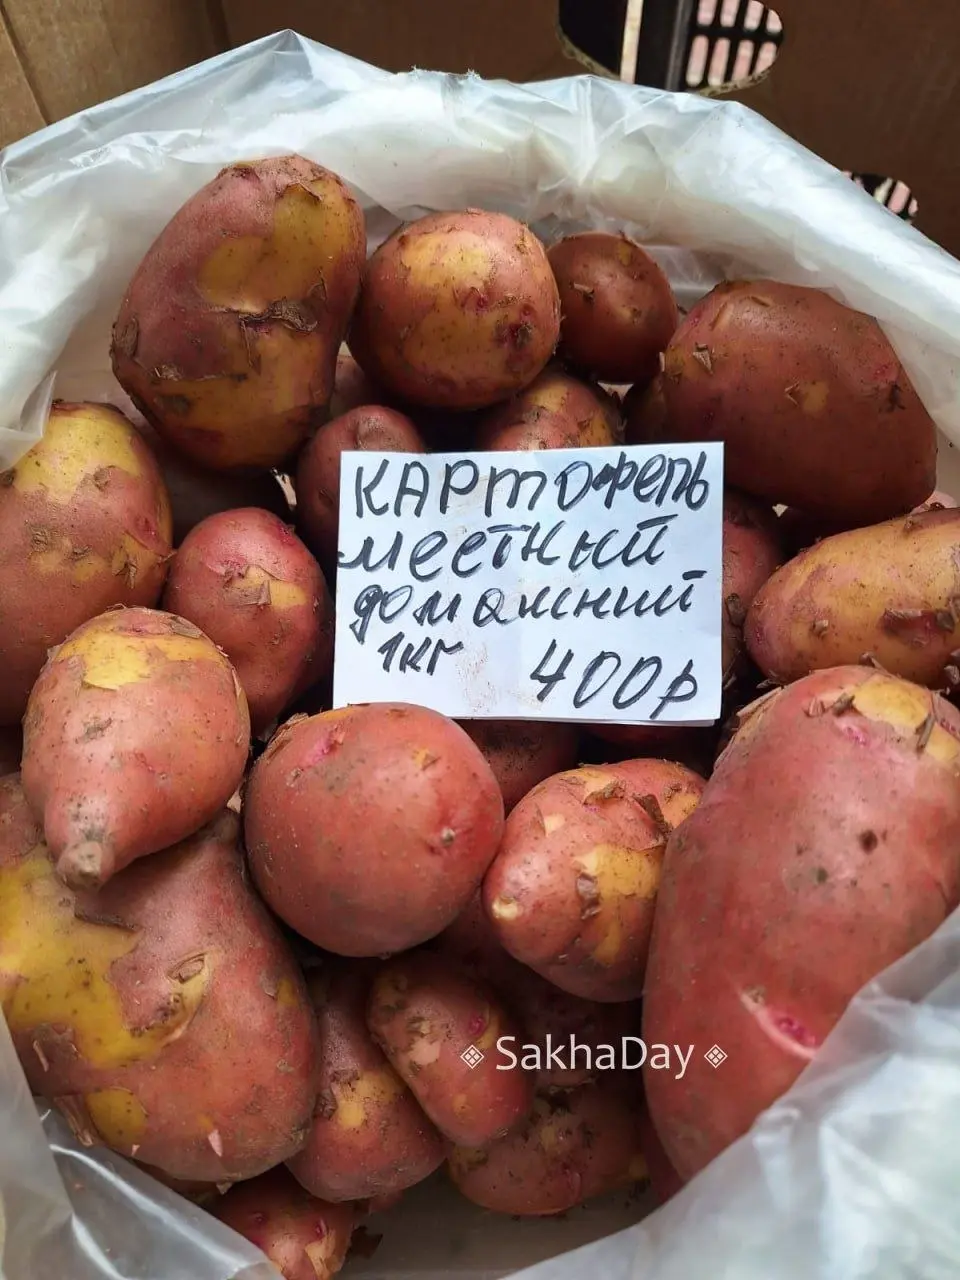 КАРТОФЕЛЬ
местный
домашний
1кг 400р
SakhaDay